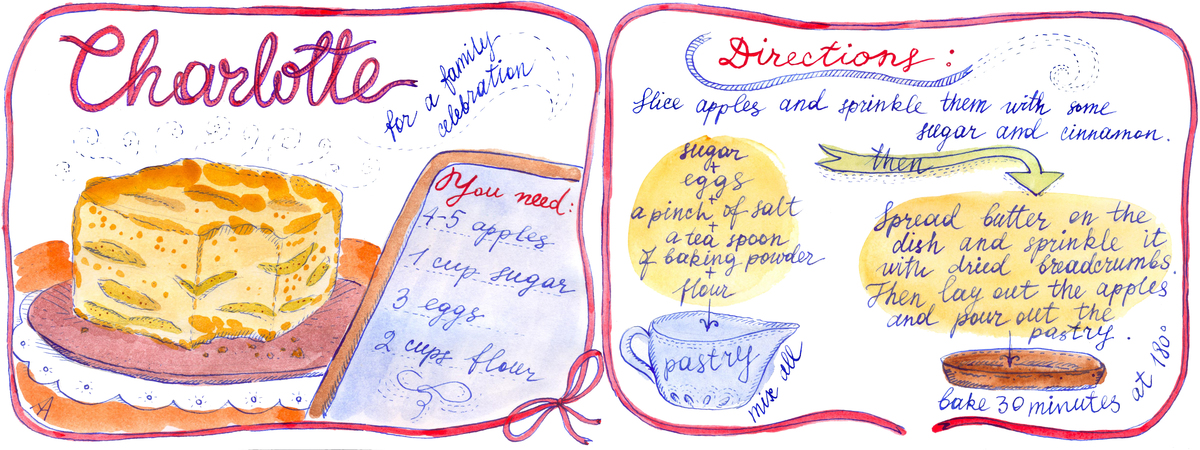 Charlotte
for a family
celebration
You need:
4-5 apples
1 cup sugar
3 eggs
2 cups flour
A
Directions:
Slice apples and sprinkle them with some
sugar and cinnamon.
sugar
+
eggs
+
a pinch of salt
+
a tea spoon
of baking powder
+
flour
pastry
mix all
then
Spread butter on the
dish and sprinkle it
with dried breadcrumbs.
Then lay out the apples
and pour out the
pastry.
bake 30 minutes
at 180°